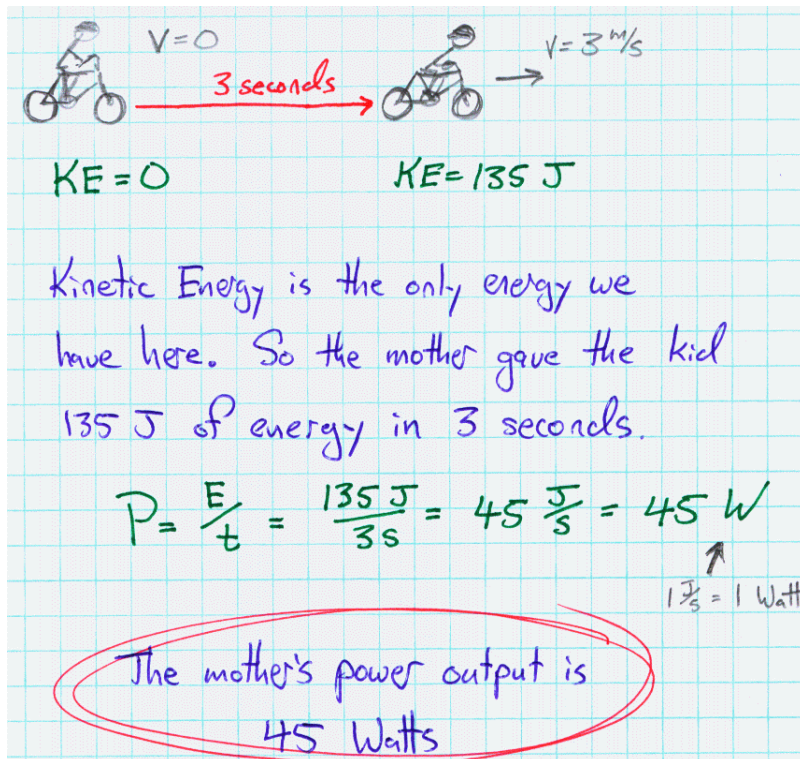 V=0
V= 3 m/s
3 seconds
KE = 0
KE= 135 J
Kinetic Energy is the only energy we
have here. So the mother gave the kid
135 J of energy in 3 seconds.
P= E/t = 135 J/3 s = 45 J/s = 45 W
1 J/s = 1 Watt
The mother's power output is
45 Watts